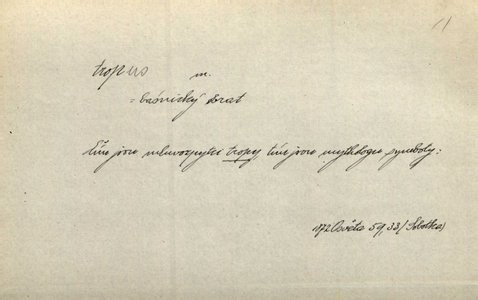 tropus m.
= básnický obrat
Čím jsou mluvozpytci tropy, tím jsou mythologu symboly:
172 Osvěta 59, 33 (Sobotka)